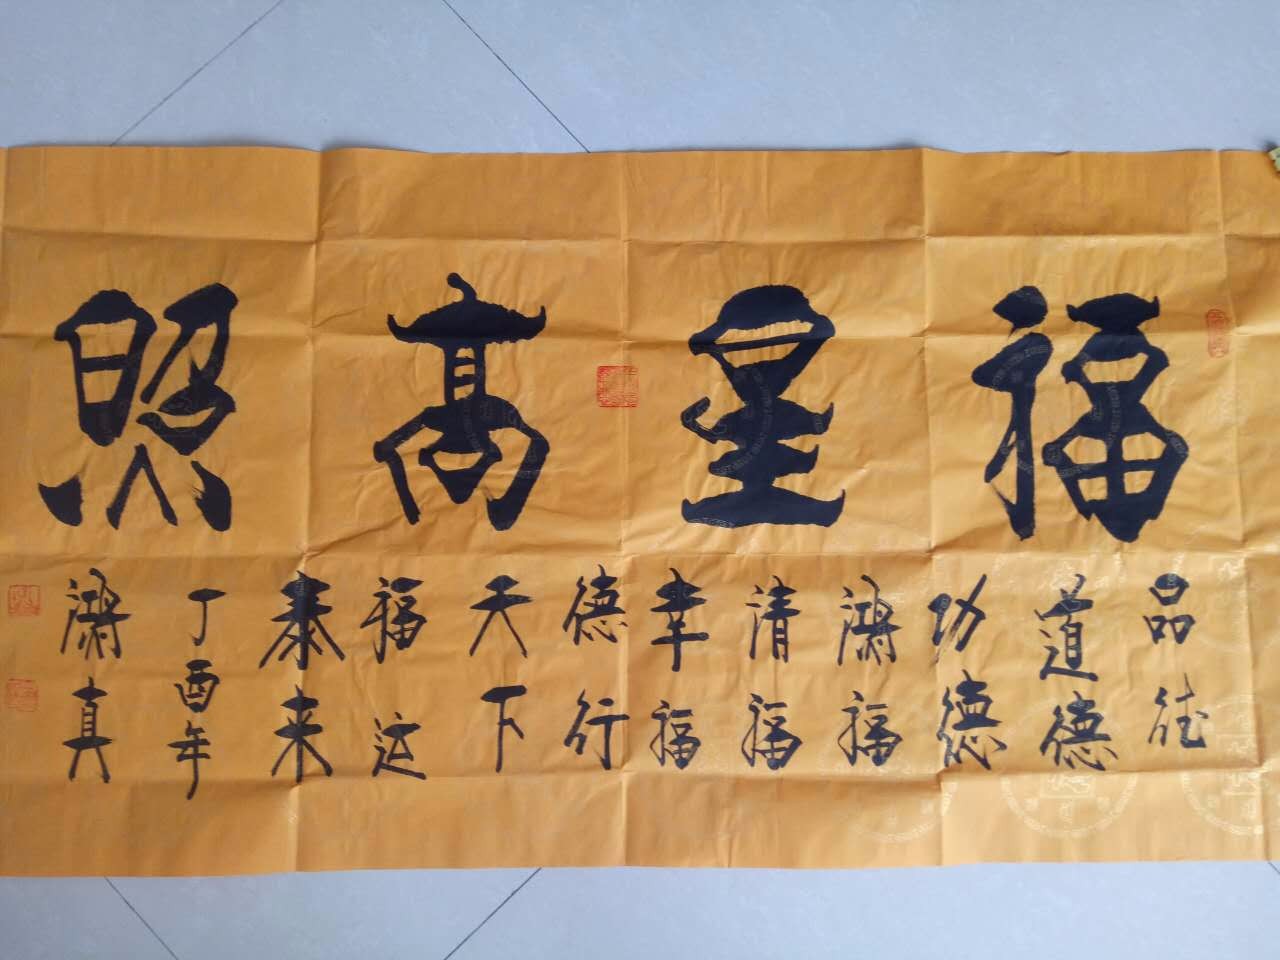 福星高照
品德
道德
功德
鴻福
清福
幸福
德行
天下
福运
泰来
丁酉年
鴻真